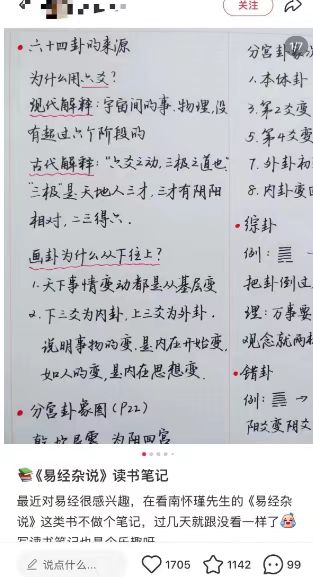 关注
1/7
• 六十四卦的来源
为什么用六爻?
现代解释:宇宙间的事.物理,没
有超过六个阶段的
古代解释:"六爻之动,三极之道也"
"三极"是天地人三才,三才有阴阳
相对,二三得六.
画卦为什么从下往上?
1.天下事情变动都是从基层变
2.下三爻为内卦,上三爻为外卦.
说明事物的变.是内在开始变,
如人的变,是内在思想变.
• 分宫卦象图(P22)
分宫卦
1.本体卦
3.第2爻变
5.第4爻变
7.外卦初
8.内卦变
• 综卦
例:
把卦倒过
理:万事要
观念就两
• 错卦
例:
阳爻变阴爻
📚《易经杂说》读书笔记
最近对易经很感兴趣,在看南怀瑾先生的《易经杂
说》这类书不做个笔记,过几天就跟没看一样了😂
说点什么...
1705
1142
99